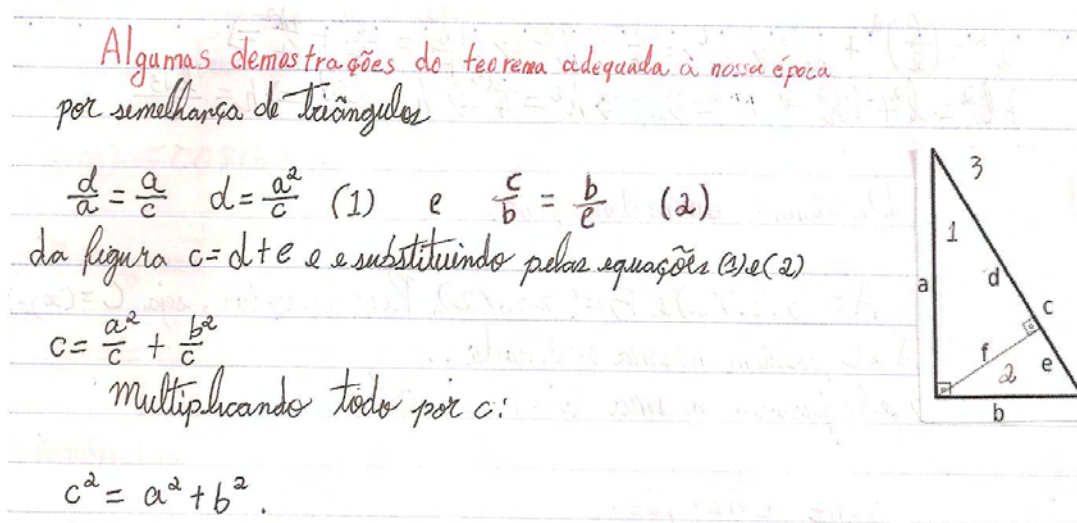 Algumas demostrações do teorema adequada à nossa época
por semelhança de triângulos
d/a = a/c d = a²/c (1) e c/b = b/e (2)
da figura c = d + e e e substituindo pelas equações (1) e (2)
c = a²/c + b²/c
Multiplicando todo por c:
c² = a² + b².
3
1
a
d
c
f
2
e
b